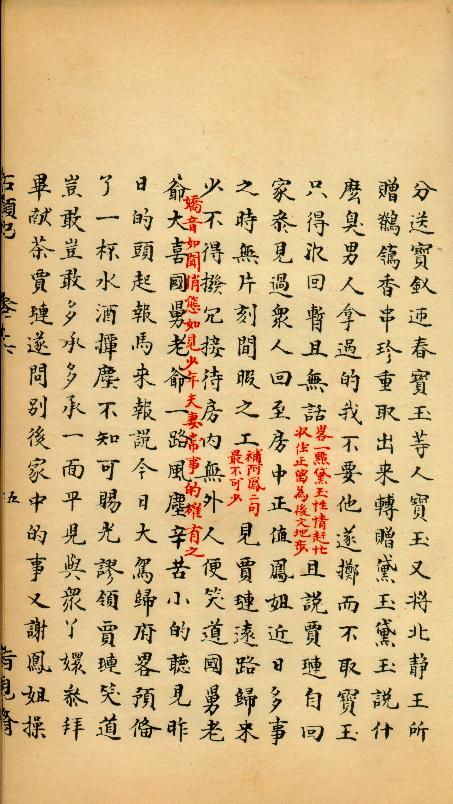 分送寶釵迎春寶玉等人寶玉又將北静王所
贈鶺鴒香串珍重取出来轉贈黛玉黛玉說什
麽臭男人拿過的我不要他遂擲而不取寶玉
只得收回暫且無話畧一點黛玉性情赶忙收住正留為後文地步且說賈璉自回
家叅見過衆人回至房中正值鳳姐近日多事
之時無片刻間暇之工補阿鳳二句最不可少見賈璉遠路歸来
少不得撥冗接待房内無外人便笑道國舅老
嬌音如聞俏態如見少年夫妻常事的確有之
爺大喜國舅老爺一路風塵辛苦小的聽見昨
日的頭起報馬来報説今日大駕歸府畧預俻
了一杯水酒撣塵不知可賜光謬領賈璉笑道
豈敢豈敢多承多承一面平兒與衆丫嬛叅拜
畢献茶賈璉遂問别後家中的事又謝鳳姐操
五